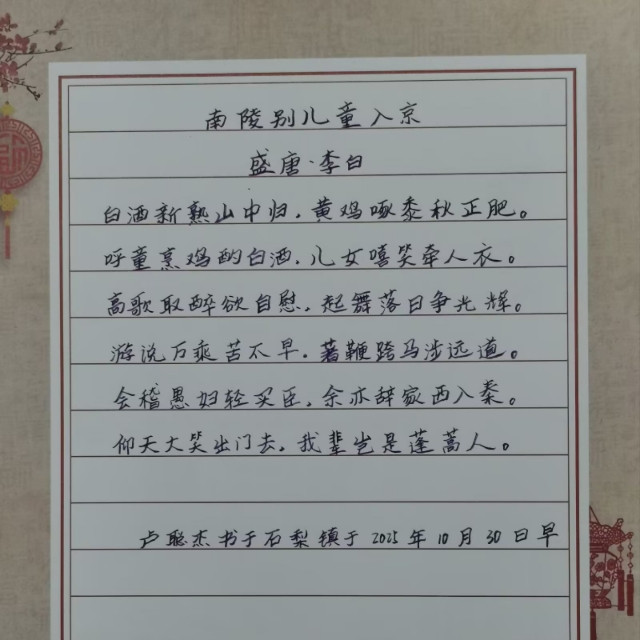 南陵别儿童入京
盛唐·李白
白酒新熟山中归,黄鸡啄黍秋正肥。
呼童烹鸡酌白酒,儿女嘻笑牵人衣。
高歌取醉欲自慰,起舞落日争光辉。
游说万乘苦不早,著鞭跨马涉远道。
会稽愚妇轻买臣,余亦辞家西入秦。
仰天大笑出门去,我辈岂是蓬蒿人。
卢聪杰书于石梨镇于2025年10月30日早